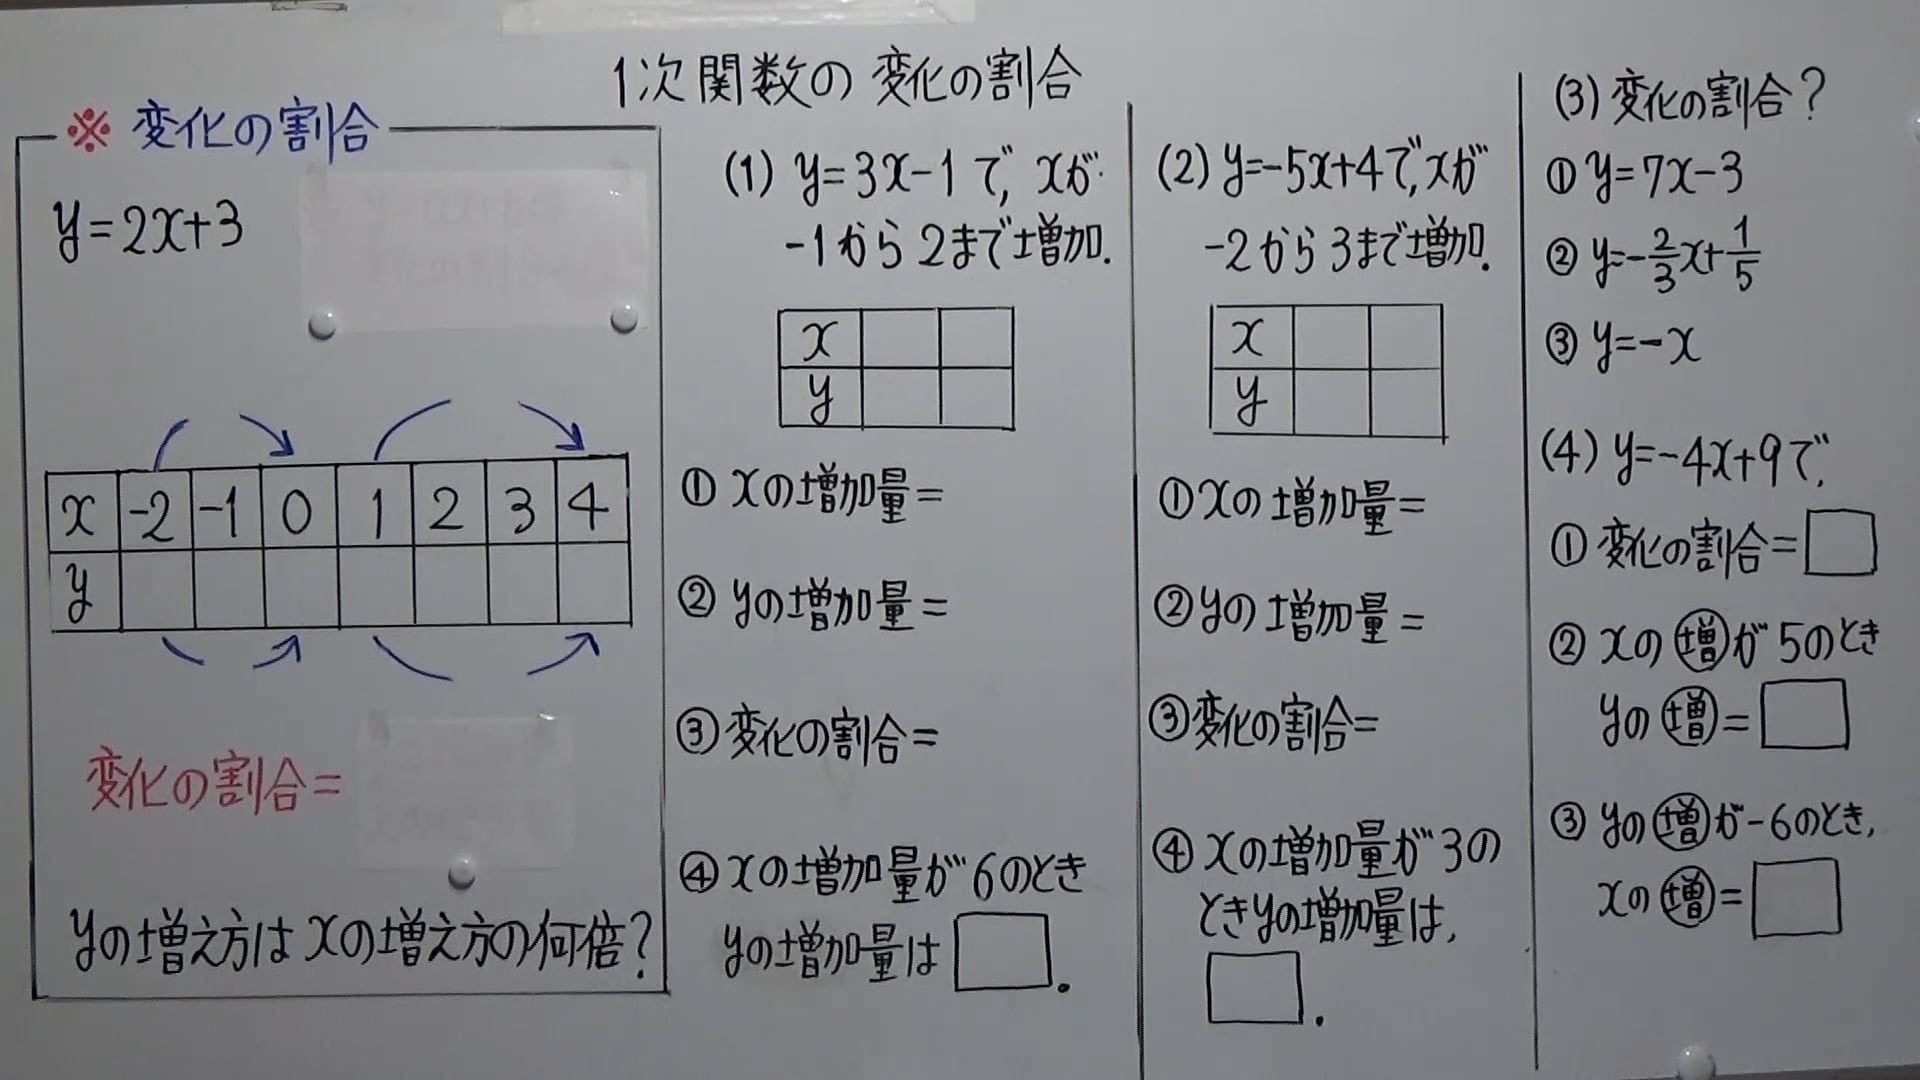 1次関数の変化の割合
※ 変化の割合
y=2x+3
x -2 -1 0 1 2 3 4
y
変化の割合=
yの増え方はxの増え方の何倍?
(1) y=3x-1で, xが
-1から2まで増加.
x
y
① xの増加量=
② yの増加量=
③ 変化の割合=
④ xの増加量が6のとき
yの増加量は□.
(2) y=-5x+4で, xが
-2から3まで増加.
x
y
① xの増加量=
② yの増加量=
③ 変化の割合=
④ xの増加量が3の
ときyの増加量は,
□.
(3) 変化の割合?
① y=7x-3
② y=-2/3x+1/5
③ y=-x
(4) y=-4x+9で,
① 変化の割合=□
② xの増が5のとき
yの増=□
③ yの増が-6のとき,
xの増=□